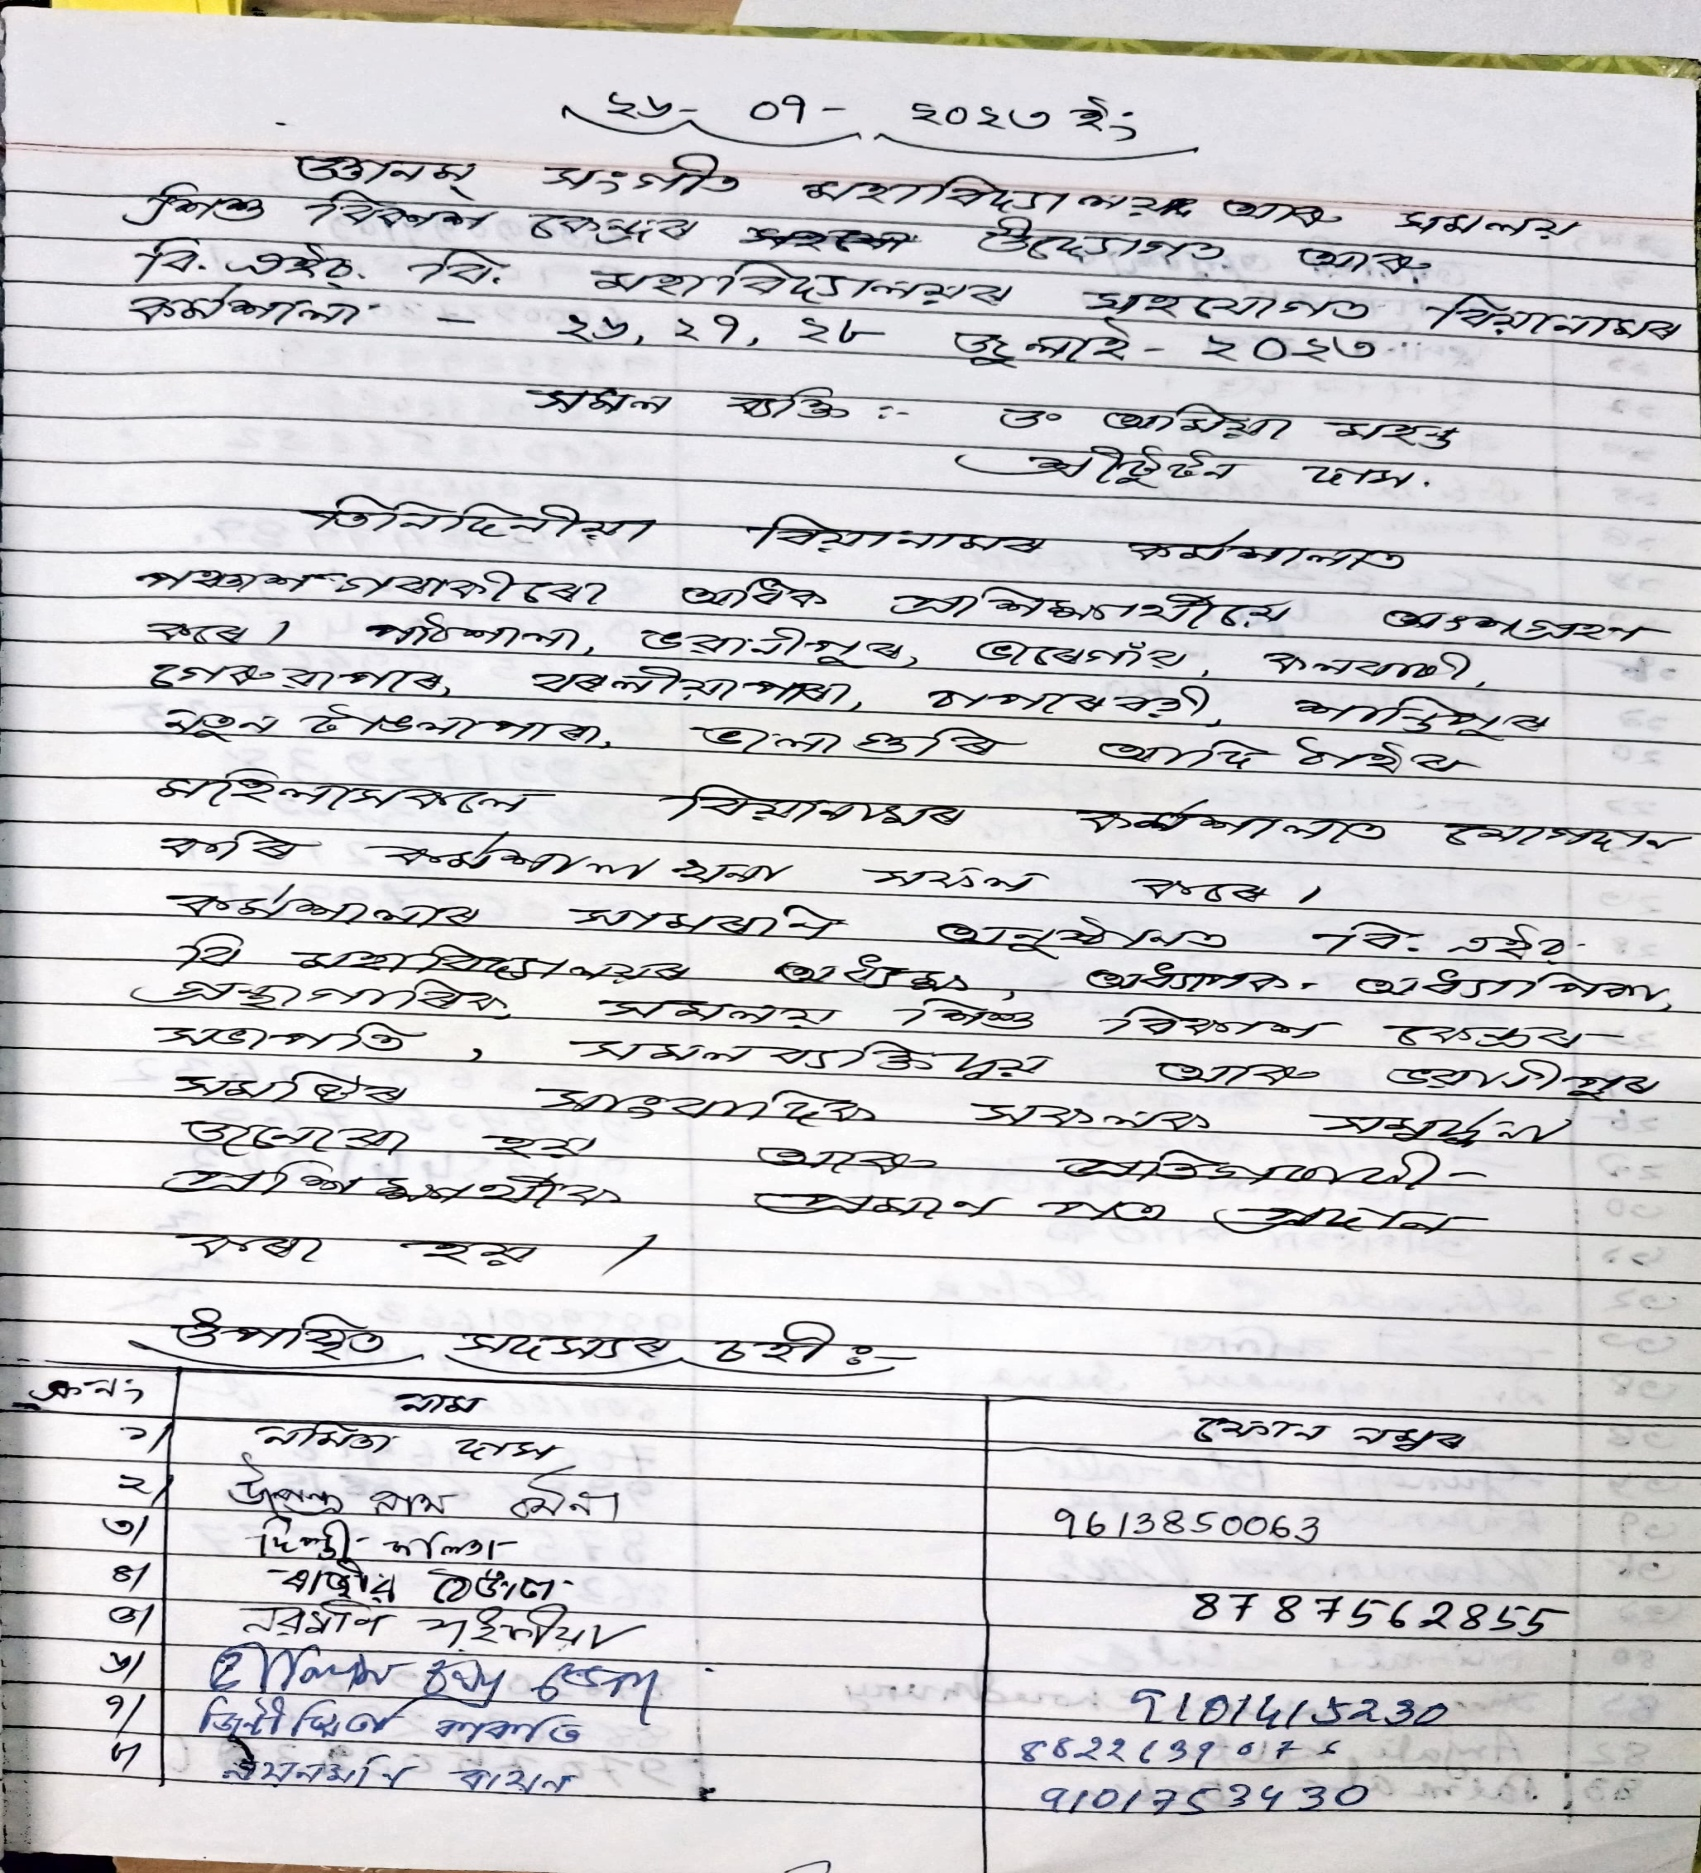 ২৬- ০৭- ২০২৩ ইং
সংগীত মহাবিদ্যালয় আৰু সমলয়
শিশু বিকাশ কেন্দ্ৰৰ উদ্যোগত আৰু
বি. এইচ. বি. মহাবিদ্যালয়ৰ সহযোগত বিয়ানামৰ
কৰ্মশালা - ২৬, ২৭, ২৮ জুলাই - ২০২৩
সমল ব্যক্তি :- ড॰ আমিয়া মহন্ত
দাস.
তিনিদিনীয়া বিয়ানামৰ কৰ্মশালাত
পঞ্চাশগৰাকীৰো অধিক প্ৰশিক্ষাৰ্থীয়ে অংশগ্ৰহণ
কৰে। পাঠশালা, ভৱানীপুৰ, ভাৰেগাঁৱ, কলবাৰী,
শান্তিপুৰ
নতুন আদি ঠাইৰ
মহিলাসকলে বিয়ানামৰ কৰ্মশালাত যোগদান
কৰি কৰ্মশালা খনা সফল কৰে।
কৰ্মশালাৰ সামৰণি অনুষ্ঠানত বি. এইচ.
বি মহাবিদ্যালয়ৰ অধ্যক্ষ, অধ্যাপক- অধ্যাপিকা,
গ্ৰন্থাগাৰিক, সমলয় শিশু বিকাশ কেন্দ্ৰৰ
সভাপতি, সমলব্যক্তিদ্বয় আৰু ভৱানীপুৰ
সমষ্টিৰ সাংবাদিক সকলক সম্বৰ্দ্ধনা
জনোৱা হয় আৰু প্ৰতিগৰাকী-
প্ৰশিক্ষাৰ্থীকে প্ৰমাণ পত্ৰ প্ৰদান
কৰা হয়।
উপস্থিত সদস্যৰ চহী :-
ক্ৰ-নং নাম ফোন নম্বৰ
১/ নমিতা দাস
২/ নাথ 9613850063
৩/ দিপ্তী কলিতা
৪/ 8787562855
৫/
৬/ 9101415230
৭/ কাকতি
৮/ কায়ন 9101753430